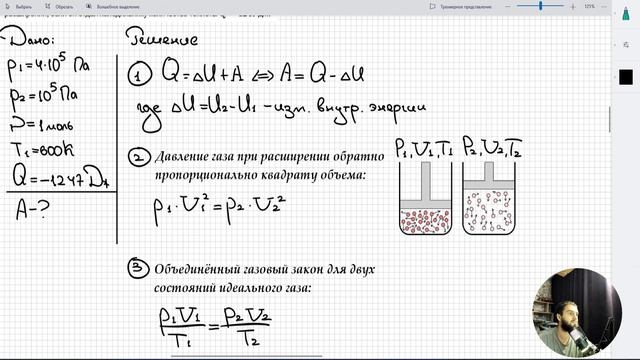 Выбрать
Рисовать
Волшебное выделение
Трехмерное представление
125%
Дано:
Решение
p₁=4·10⁵ Па
p₂=10⁵ Па
ν=1 моль
T₁=600K
Q=-1247 Дж
A-?
1 Q=ΔU+A ⇔ A=Q-ΔU
где ΔU=U₂-U₁ -изм. внутр. энергии
2 Давление газа при расширении обратно
пропорционально квадрату объема:
p₁·V₁²=p₂·V₂²
P₁,V₁,T₁ P₂,V₂,T₂
3 Объединённый газовый закон для двух
состояний идеального газа:
p₁V₁/T₁=p₂V₂/T₂